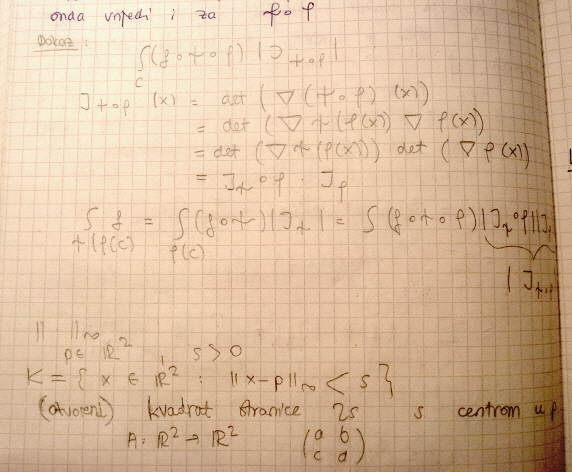 onda vrijedi i za ψ∘φ
Dokaz:
∫_C (f∘ψ∘φ) |J_{ψ∘φ}|
J_{ψ∘φ} (x) = det (∇(ψ∘φ) (x))
= det (∇ψ(φ(x)) ∇φ(x))
= det (∇ψ(φ(x))) det (∇φ(x))
= J_ψ∘φ · J_φ
∫_{ψ(φ(C))} f = ∫_{φ(C)} (f∘ψ) |J_ψ| = ∫ (f∘ψ∘φ) |J_ψ∘φ||J_φ
|J_{ψ∘φ}
|| · ||_∞
p ∈ ℝ², s > 0
K = { x ∈ ℝ² : ||x-p||_∞ < s }
(otvoreni) kvadrat stranice 2s s centrom u p
A: ℝ² → ℝ² (a b
c d)